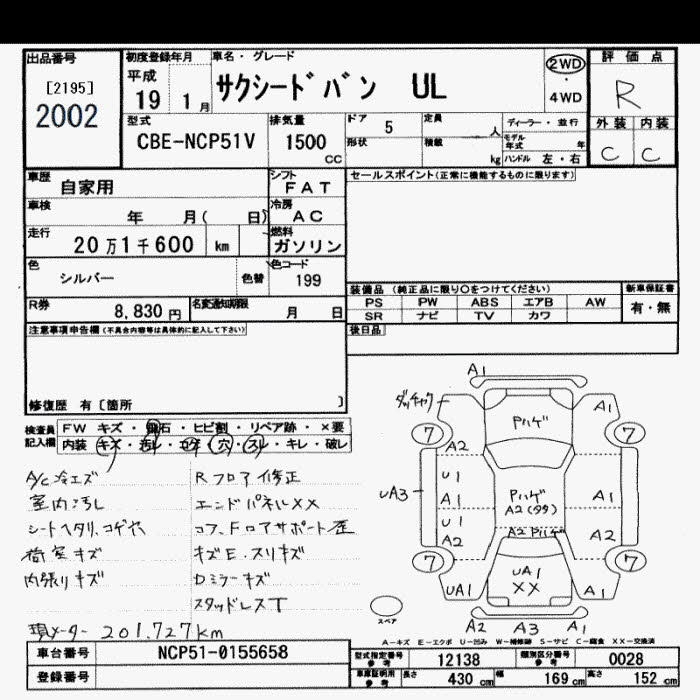 出品番号
[2195]
2002
初度登録年月
平成
19 1月
車名・グレード
サクシードバン UL
2WD
・
4WD
評価点
R
型式
CBE-NCP51V
排気量
1500
CC
ドア 5
形状
定員
人
積載
kg
ディーラー・並行
モデル年式 年
ハンドル 左・右
外装 内装
C C
車歴
自家用
シフト
FAT
車検
年 月( 日)
冷房
AC
走行
20万1千600 km
燃料
ガソリン
色
シルバー
色替
色コード
199
R券
8,830円
名変通知期限
月 日
セールスポイント(正常に機能するものに限ります)
装備品 (純正品に限り○をつけてください)
PS PW ABS エアB AW
SR ナビ TV カワ
新車保証書
有・無
後日品
注意事項申告欄(不具合内容等は具体的に記入して下さい)
修復歴 有〔箇所 〕
検査員記入欄
FW キズ・飛石・ヒビ割・リペア跡・×要
内装 キズ・汚レ・コゲ・穴・スレ・キレ・破レ
A/C冷エズ
室内汚し
シートヘタリ、コゲ穴
荷室キズ
内張りキズ
Rフロア修正
エンドパネルXX
コア、Fロアサポート歪
キズE・スリキズ
Dミラーキズ
スタッドレスT
現メーター 201,727km
A1
Pハゲ
A1
7
7
A2
U1
A1
U1
A2
UA3
Pハゲ
A2(99)
A1
A2 Pハゲ
A2
7
7
UA1
UA1
XX
A1
A2 A3 A1
スペア
A-キズ E-エクボ U-凹み W-補修跡 S-サビ C-腐食 XX-交換済
車台番号
NCP51-0155658
登録番号
型式指定番号
参考
12138
類別区分番号
参考
0028
車庫証明用
参考
長さ 430cm 幅 169cm 高さ 152cm